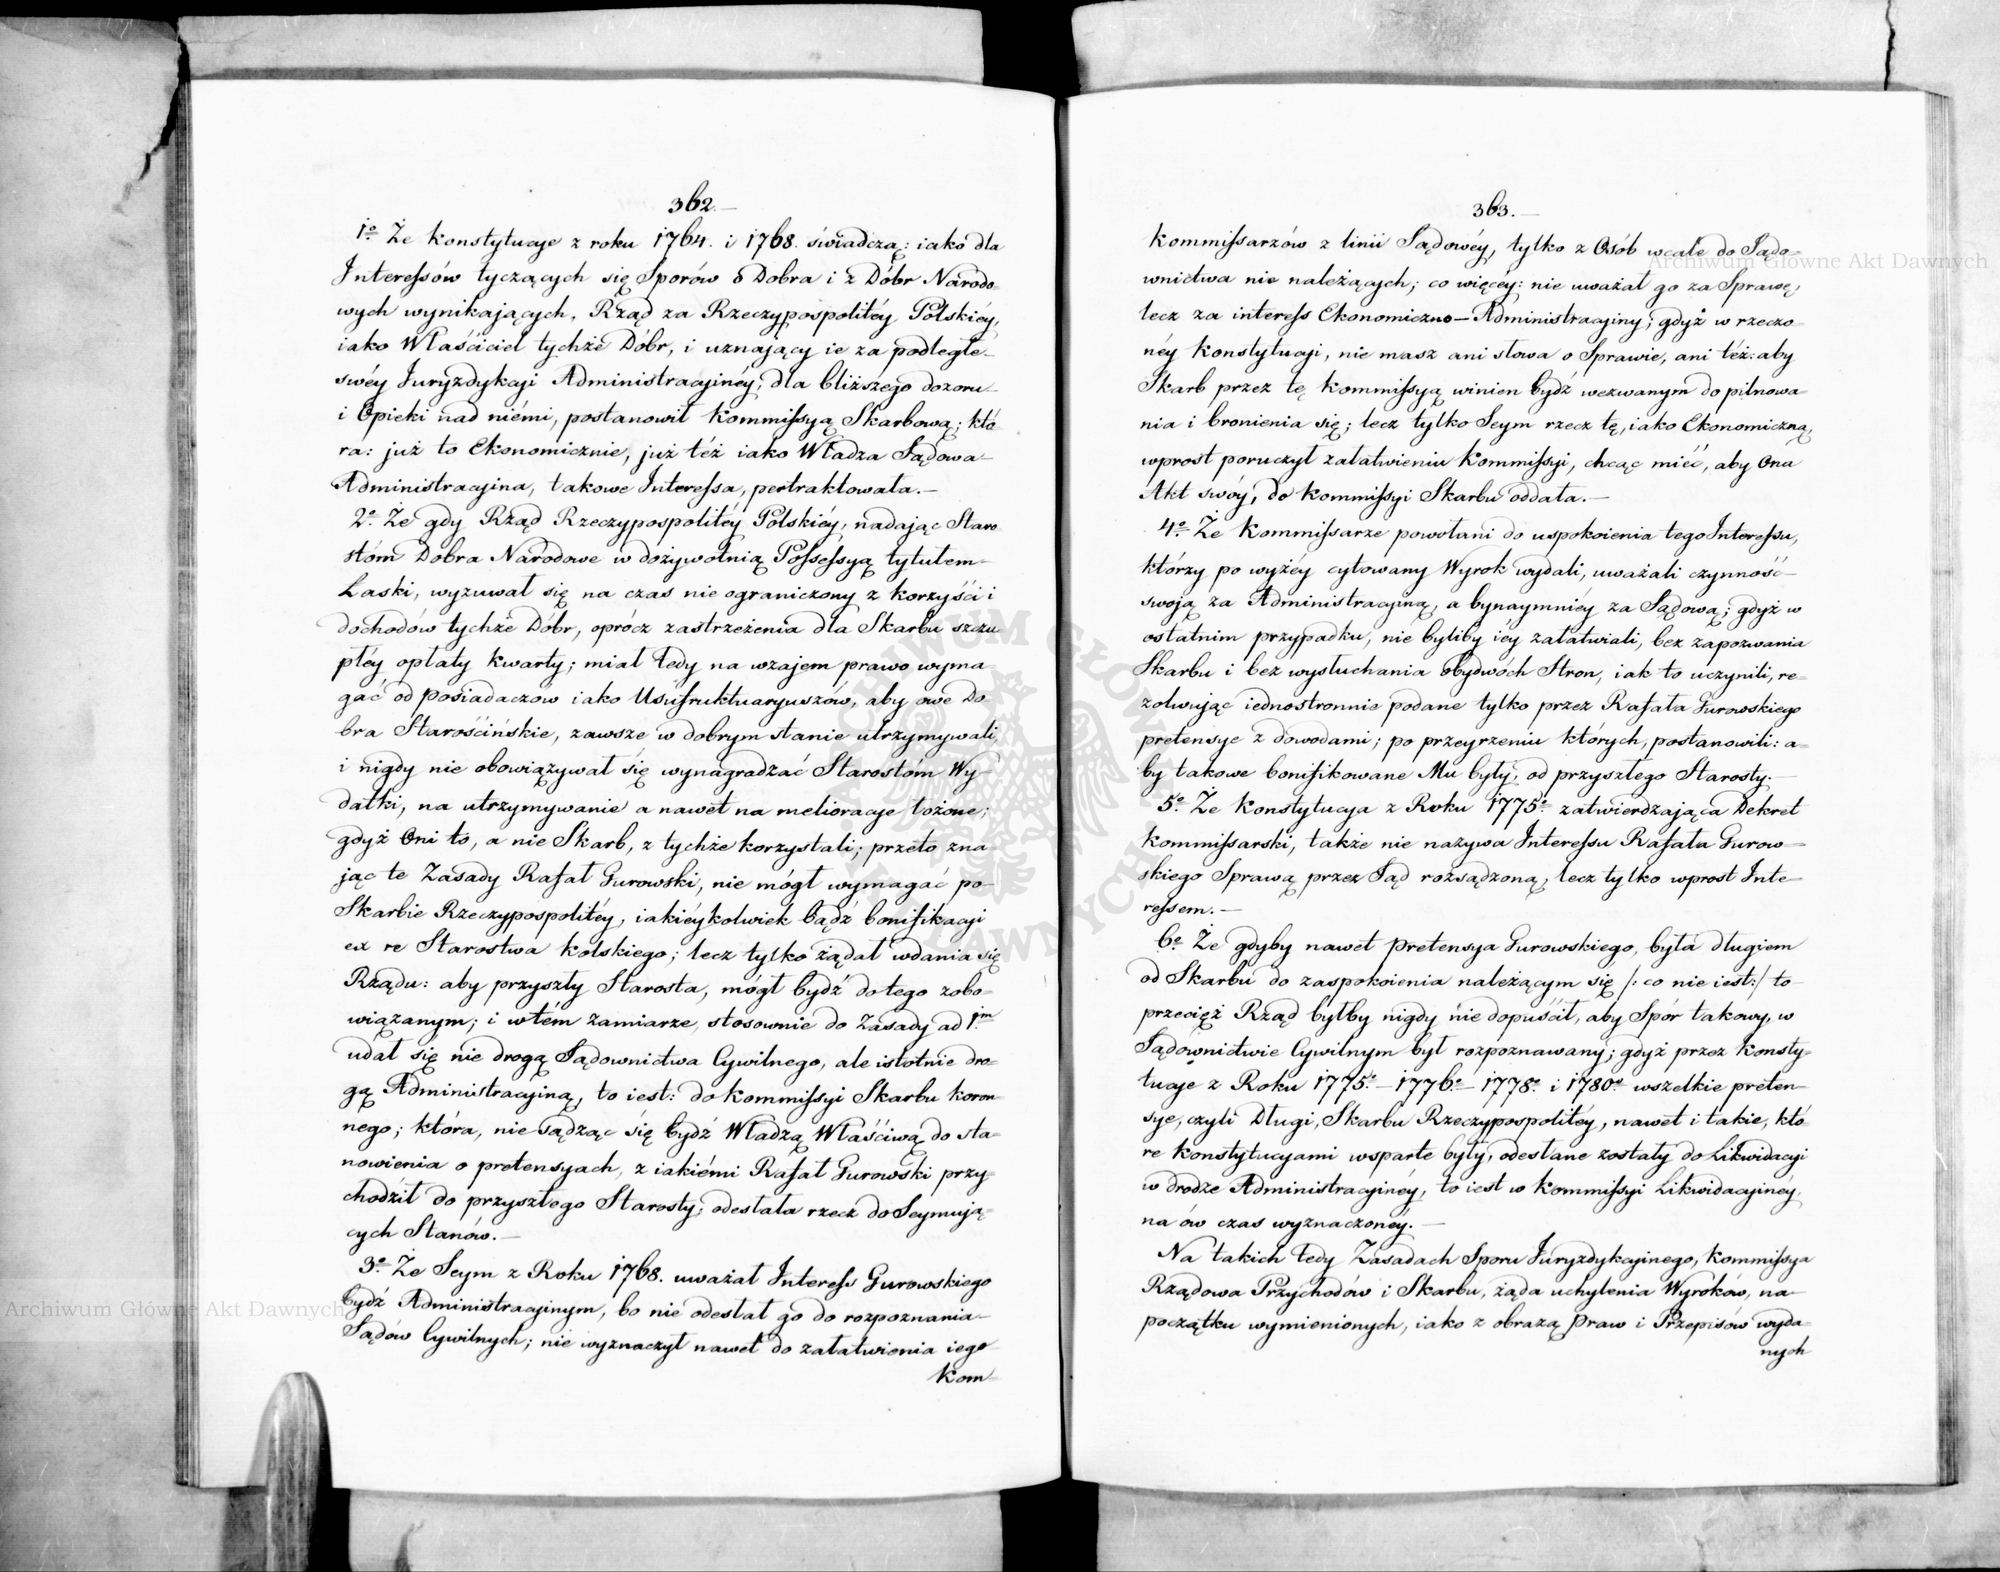 362.—
1º Że Konstytucye z roku 1764. i 1768. świadczą: iako dla
Interessów tyczących się Sporów o Dobra i z Dóbr Narodo-
wych wynikających, Rząd za Rzeczypospolitéy Polskiéy,
iako Właściciel tychże Dóbr, i uznający ie za podległe
swéy Juryzdykcyi Administracyinéy, dla bliższego dozoru
i Opieki nad niémi, postanowił Kommissyą Skarbową; któ-
ra: już to Ekonomicznie, już téż iako Władza Sądowa
Administracyina, takowe Interessa, pertraktowała.—
2º Że gdy Rząd Rzeczypospolitéy Polskiéy, nadając Staro-
stóm Dobra Narodowe w dożywotnią Possessyą tytułem
Łaski, wyzuwał się na czas nieograniczony z korzyści i
dochodów tychże Dóbr, oprócz zastrzeżenia dla Skarbu szczu-
płéy opłaty kwarty; miał tedy na wzajem prawo wyma-
gać od posiadaczów iako Usufruktuaryuszów, aby owe Do-
bra Starościńskie, zawsze w dobrym stanie utrzymywali,
i nigdy nie obowiązywał się wynagradzać Starostóm Wy-
datki, na utrzymywanie a nawet na melioracye łożone;
gdyż Oni to, a nie Skarb, z tychże korzystali; przeto zna-
jąc te Zasady Rafał Gurowski, nie mógł wymagać po
Skarbie Rzeczypospolitéy, iakiéykolwiek bądź bonifikacyi
ex re Starostwa Kolskiego; lecz tylko żądał wdania się
Rządu: aby przyszły Starosta, mógł bydź do tego zobo-
wiązanym; i w tém zamiarze, stosownie do Zasady ad 1m
udał się nie drogą Sądownictwa Cywilnego, ale istotnie dro-
gą Administracyiną, to iest: do Kommissyi Skarbu Koron-
nego; która, nie sądząc się bydź Władzą Właściwą do sta-
nowienia o pretensyach, z iakiémi Rafał Gurowski przy-
chodził do przyszłego Starosty; odesłała rzecz do Seymują-
cych Stanów.—
3º Że Seym z Roku 1768. uważał Interess Gurowskiego
bydź Administracyinym, bo nie odesłał go do rozpoznania
Sądów Cywilnych; nie wyznaczył nawet do załatwienia iego
Kom-
363.—
Kommissarzów z linii Sądowéy, tylko z Osób wcale do Sądo-
wnictwa nie należących; co więcéy: nie uważał go za Sprawę,
lecz za interess Ekonomiczno-Administracyiny; gdyż w rzeczo-
néy Konstytucyi, nie masz ani słowa o Sprawie, ani téż: aby
Skarb przez tę Kommissyą winien bydź wezwanym do pilnowa-
nia i bronienia się; lecz tylko Seym rzecz tę, iako Ekonomiczną,
wprost poruczył załatwieniu Kommissyi, chcąc mieć, aby Ona
Akt swóy, do Kommissyi Skarbu oddała.—
4º Że Kommissarze powołani do uspokoienia tego Interessu,
którzy po wyżéy cytowany Wyrok wydali, uważali czynność
swoją za Administracyiną, a bynaymniéy za Sądową; gdyż w
ostatnim przypadku, nie byliby iéy załatwiali, bez zapozwania
Skarbu i bez wysłuchania obydwóch Stron, iak to uczynili, re-
zolwując iednostronnie podane tylko przez Rafała Gurowskiego
pretensye z dowodami; po przeyrzeniu których, postanowili: a-
by takowe bonifikowane Mu były, od przyszłego Starosty.—
5º Że Konstytucya z Roku 1775º zatwierdzająca Dekret
Kommissarski, także nie nazywa Interessu Rafała Gurow-
skiego Sprawą przez Sąd rozsądzoną, lecz tylko wprost Inte-
ressem.—
6º Że gdyby nawet pretensya Gurowskiego, była długiem
od Skarbu do zaspokoienia należącym się /: co nie iest:/ to
przecięż Rząd byłby nigdy nie dopuścił, aby Spór takowy, w
Sądownictwie Cywilnym był rozpoznawany; gdyż przez Konsty-
tucye z Roku 1775º— 1776º— 1778º i 1780º wszelkie preten-
sye, czyli Długi, Skarbu Rzeczypospolitéy, nawet i takie, któ-
re Konstytucyami wsparte były, odesłane zostały do Likwidacyi
w drodze Administracyinéy, to iest w Kommissyi Likwidacyinéy,
na ów czas wyznaczonéy.—
Na takich tedy Zasadach Sporu Juryzdykcyinego, Kommissya
Rządowa Przychodów i Skarbu, żąda uchylenia Wyroków, na
początku wymienionych, iako z obrazą Praw i Przepisów wyda-
nych
Archiwum Główne Akt Dawnych
Archiwum Główne Akt Dawnych
ARCHIWUM GŁÓWNE AKT DAWNYCH